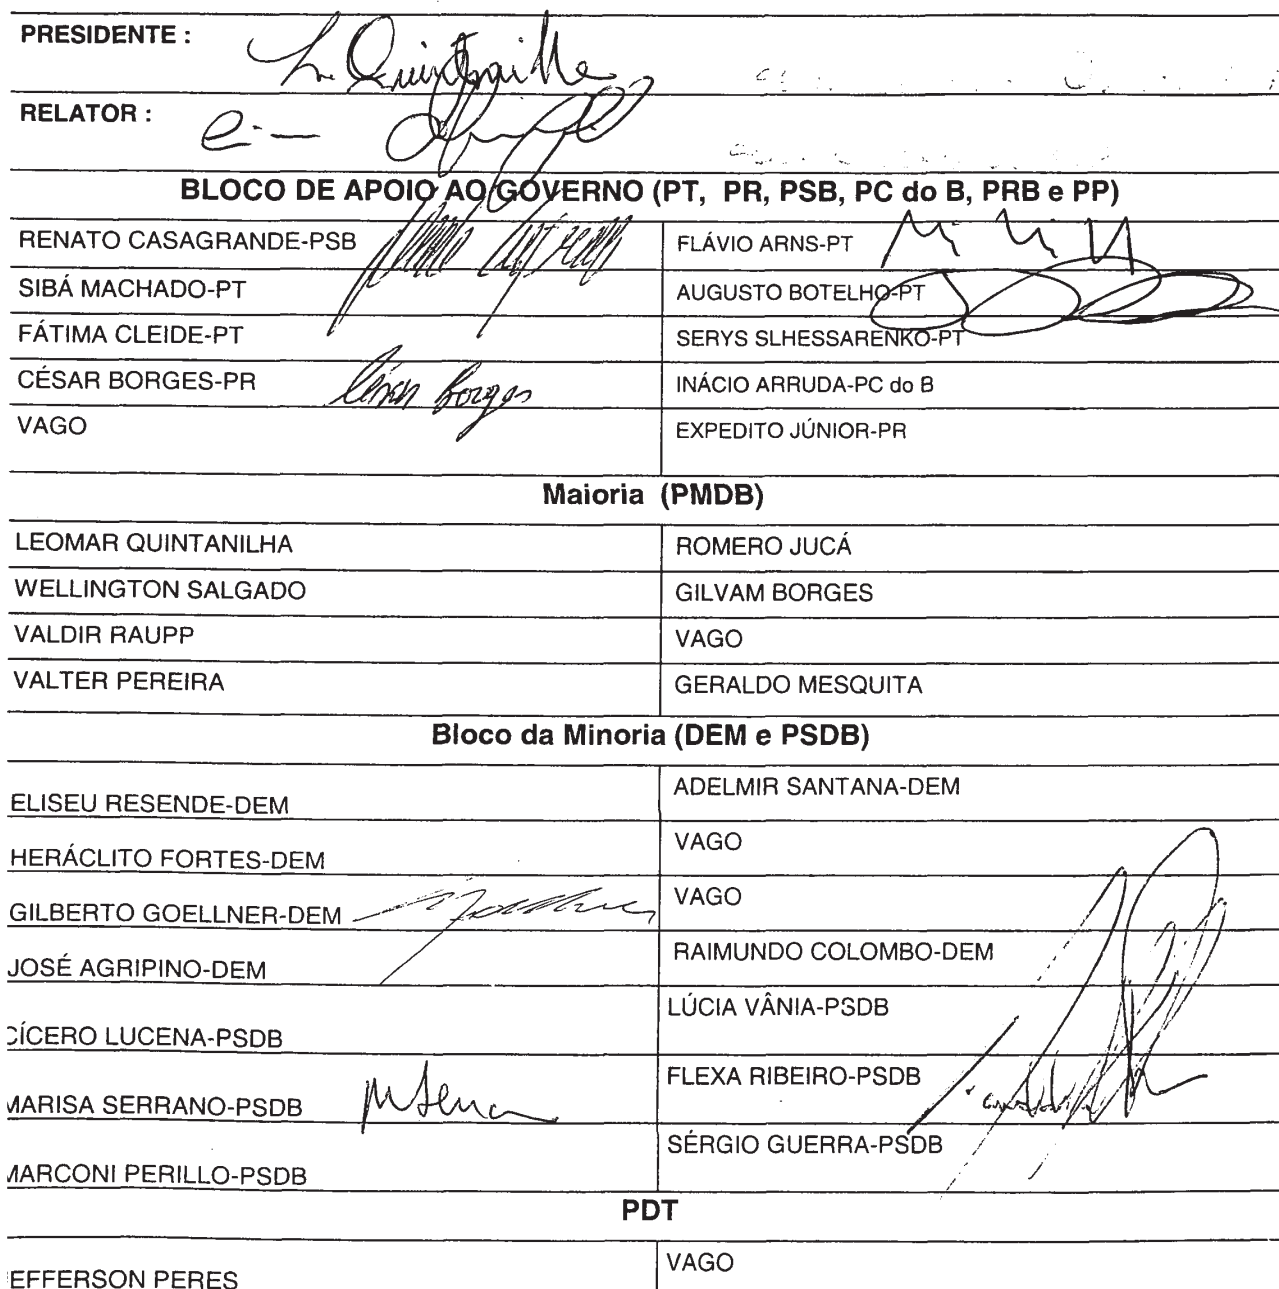 PRESIDENTE :
L. Quintanilha
RELATOR :
BLOCO DE APOIO AO GOVERNO (PT, PR, PSB, PC do B, PRB e PP)
RENATO CASAGRANDE-PSB
FLÁVIO ARNS-PT
SIBÁ MACHADO-PT
AUGUSTO BOTELHO-PT
FÁTIMA CLEIDE-PT
SERYS SLHESSARENKO-PT
CÉSAR BORGES-PR César Borges
INÁCIO ARRUDA-PC do B
VAGO
EXPEDITO JÚNIOR-PR
Maioria (PMDB)
LEOMAR QUINTANILHA
ROMERO JUCÁ
WELLINGTON SALGADO
GILVAM BORGES
VALDIR RAUPP
VAGO
VALTER PEREIRA
GERALDO MESQUITA
Bloco da Minoria (DEM e PSDB)
ELISEU RESENDE-DEM
ADELMIR SANTANA-DEM
HERÁCLITO FORTES-DEM
VAGO
GILBERTO GOELLNER-DEM
VAGO
JOSÉ AGRIPINO-DEM
RAIMUNDO COLOMBO-DEM
CÍCERO LUCENA-PSDB
LÚCIA VÂNIA-PSDB
MARISA SERRANO-PSDB
FLEXA RIBEIRO-PSDB
MARCONI PERILLO-PSDB
SÉRGIO GUERRA-PSDB
PDT
EFFERSON PERES
VAGO